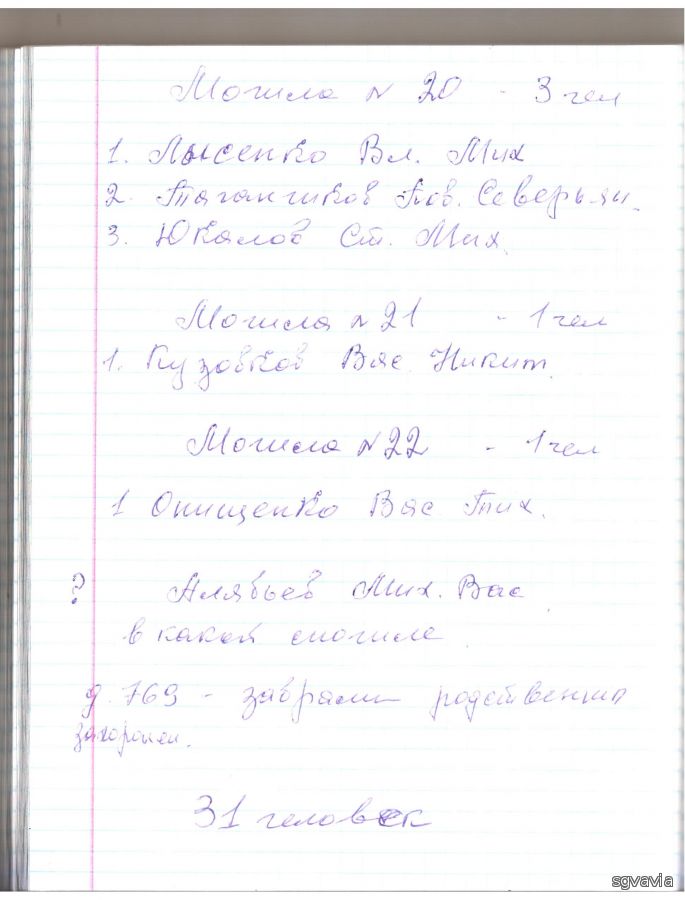 Могила N 20 - 3 чел
1. Лысенко Вл. Мих
2. Таганчиков Пов. Северьян.
3. Юкалов Ст. Мих.
Могила N 21 - 1 чел
1. Кузовков Вас. Никит.
Могила N 22 - 1 чел
1 Онищенко Вас Тих.
? Алябьев Мих. Вас
в какой могиле
д. 769 - забрали родственник
захоронен.
31 человек
sgvavia